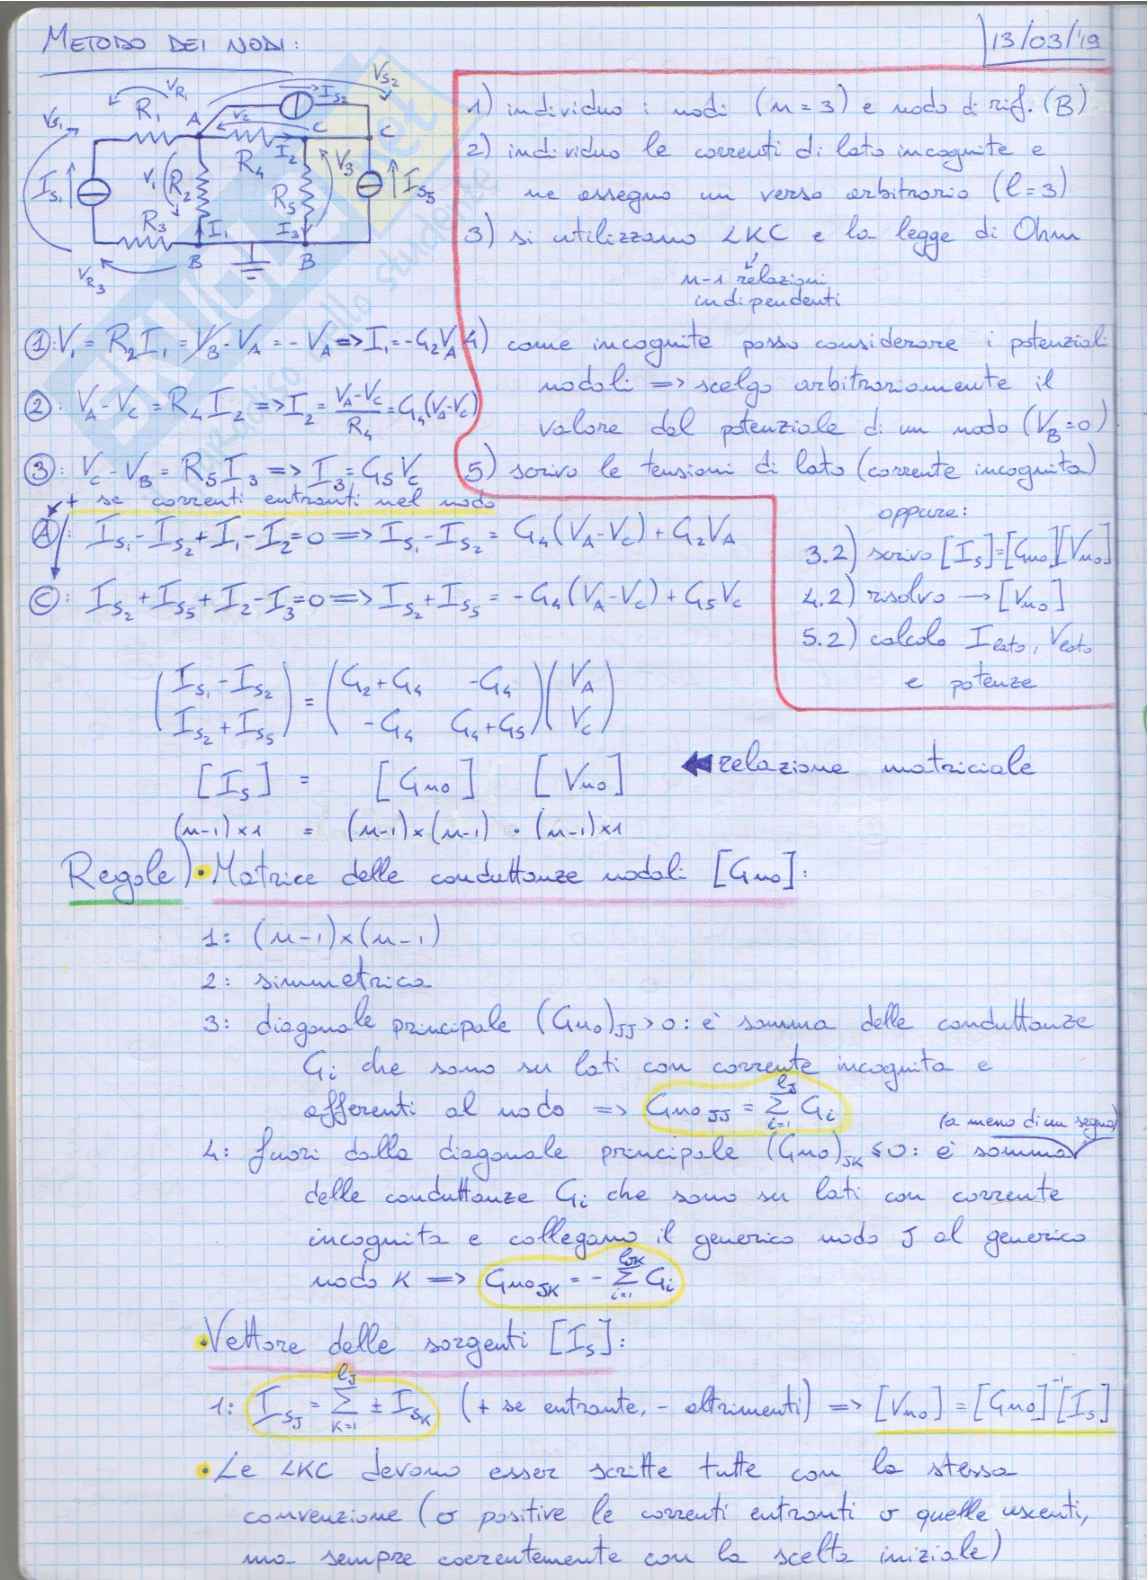 METODO DEI NODI:
13/03/'19
1) individuo i nodi (n=3) e nodo di rif. (B)
2) individuo le correnti di lato incognite e
ne assegno un verso arbitrario (l=3)
3) si utilizzano LKC e la legge di Ohm
n-1 relazioni
indipendenti
4) come incognite posso considerare i potenziali
nodali => scelgo arbitrariamente il
valore del potenziale di un nodo (V_B=0)
5) scrivo le tensioni di lato (corrente incognita)
oppure:
3.2) scrivo [I_s]=[G_no][V_no]
4.2) risolvo → [V_no]
5.2) calcolo I_lato, V_lato
e potenze
V_R1
V_S2
R_1
I_S2
V_S1
A
V_c
C
C
I_2
R_4
I_S1
V_1
R_2
R_5
V_3
I_S5
R_3
I_1
I_3
B
B
V_R3
①: V_1 = R_2 I_1 = V_B - V_A = - V_A => I_1 = -G_2 V_A
②: V_A - V_C = R_4 I_2 => I_2 = (V_A - V_C)/R_4 = G_4(V_A - V_C)
③: V_C - V_B = R_5 I_3 => I_3 = G_5 V_C
+ se correnti entranti nel nodo
Ⓐ: I_S1 - I_S2 + I_1 - I_2 = 0 => I_S1 - I_S2 = G_4(V_A - V_C) + G_2 V_A
Ⓒ: I_S2 + I_S5 + I_2 - I_3 = 0 => I_S2 + I_S5 = -G_4(V_A - V_C) + G_5 V_C
(I_S1 - I_S2) = (G_2 + G_4   -G_4) (V_A)
(I_S2 + I_S5)   (-G_4   G_4 + G_5) (V_C)
[I_s] = [G_no] [V_no] ← relazione matriciale
(n-1)×1 = (n-1)×(n-1) · (n-1)×1
Regole) • Matrice delle conduttanze nodali [G_no]:
1: (n-1)×(n-1)
2: simmetrica
3: diagonale principale (G_no)_JJ > 0: è somma delle conduttanze
G_i che sono su lati con corrente incognita e
afferenti al nodo => G_no JJ = Σ_{i=1}^{l_J} G_i
(a meno di un segno)
4: fuori dalla diagonale principale (G_no)_JK ≤ 0: è somma
delle conduttanze G_i che sono su lati con corrente
incognita e collegano il generico nodo J al generico
nodo K => G_no JK = - Σ_{i=1}^{l_JK} G_i
• Vettore delle sorgenti [I_s]:
1: I_SJ = Σ_{K=1}^{l_J} ± I_SK (+ se entrante, - altrimenti) => [V_no] = [G_no]^-1 [I_s]
• Le LKC devono esser scritte tutte con la stessa
convenzione (o positive le correnti entranti o quelle uscenti,
ma sempre coerentemente con la scelta iniziale)